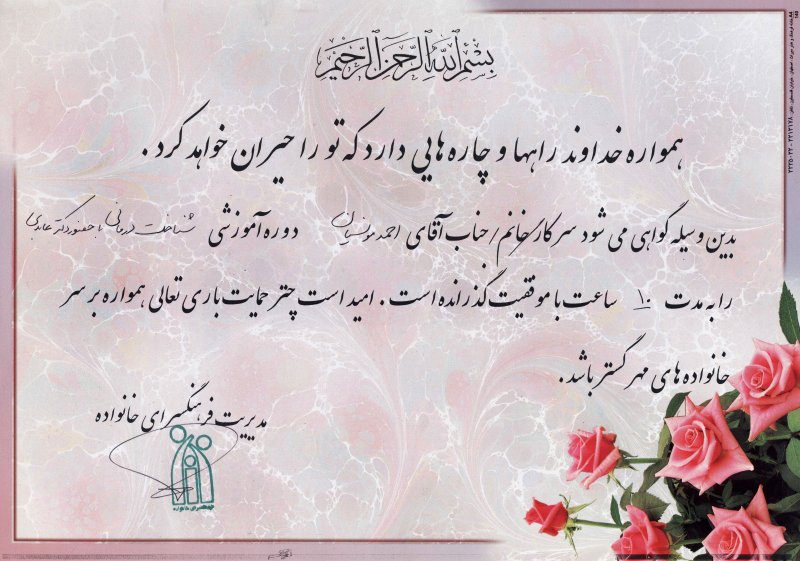 بسم الله الرحمن الرحیم
همواره خداوند راهها و چاره‌هایی دارد که تو را حیران خواهد کرد.
بدین وسیله گواهی می شود سرکار خانم/جناب آقای احمد دوره آموزشی شناخت درمانی با حضور دکتر عابدی
را به مدت ۱۰ ساعت با موفقیت گذرانده است. امید است چتر حمایت باری تعالی همواره بر سر
خانواده های مهر گستر باشد.
مدیریت فرهنگسرای خانواده
فرهنگسرای خانواده